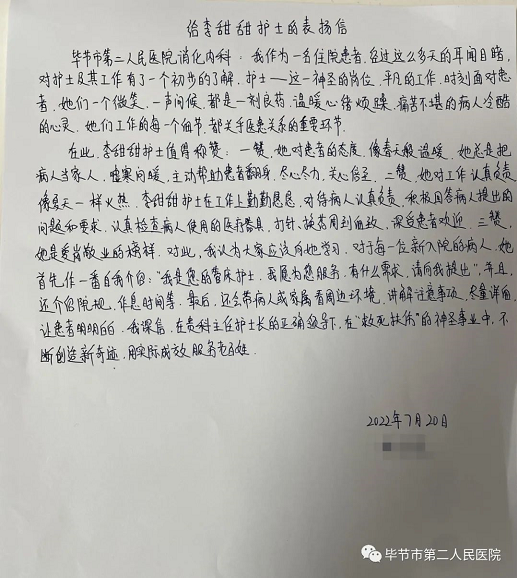 给李甜甜护士的表扬信
毕节市第二人民医院消化内科：我作为一名住院患者，经过这么多天的耳闻目睹，
对护士及其工作有了一个初步的了解。护士——这一神圣的岗位，平凡的工作，时刻面对患
者，她们一个微笑、一声问候，都是一剂良药，温暖心绪烦躁、痛苦不堪的病人冷酷
的心灵。她们工作的每一个细节，都关乎医患关系的重要环节。
在此，李甜甜护士值得称赞：一赞，她对患者的态度，像春天般温暖，她总是把
病人当家人，嘘寒问暖，主动帮助患者翻身，尽心尽力，关心倍至。二赞，她对工作认真负责
像夏天一样火热。李甜甜护士在工作上勤勤恳恳，对待病人认真负责，积极回答病人提出的
问题和要求，认真检查病人使用的医疗器具，打针、换药周到细致，深受患者欢迎。三赞，
她是爱岗敬业的榜样。对此，我认为大家应该向她学习，对于每一位新入院的病人，她
首先作一番自我介绍："我是您的管床护士，我愿为您服务，有什么需求，请向我提出"，并且，
还介绍院规，作息时间等。最后，还会带病人或家属看周边环境，讲解注意事项，尽量详细，
让患者明明白白。我深信，在贵科主任护士长的正确领导下，在"救死扶伤"的神圣事业中，不
断创造新奇迹，用实际成效服务老百姓。
2022年7月20日
毕节市第二人民医院